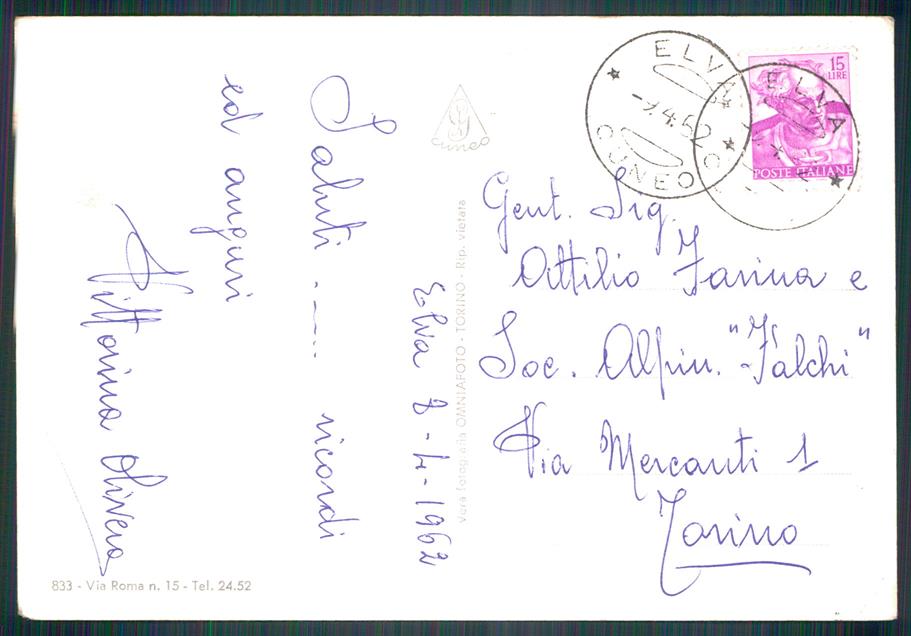 Saluti ........ ricordi
ed auguri
Vittorina Olivero
Elva 8-4-1962
Cuneo
Vera fotografia OMNIAFOTO - TORINO - Rip. vietata
833 - Via Roma n. 15 - Tel. 24.52
ELVA
CUNEO
ELVA
15
LIRE
POSTE ITALIANE
Gent. Sig.
Attilio Farina e
Soc. Alpin. "Falchi"
Via Mercanti 1
Torino